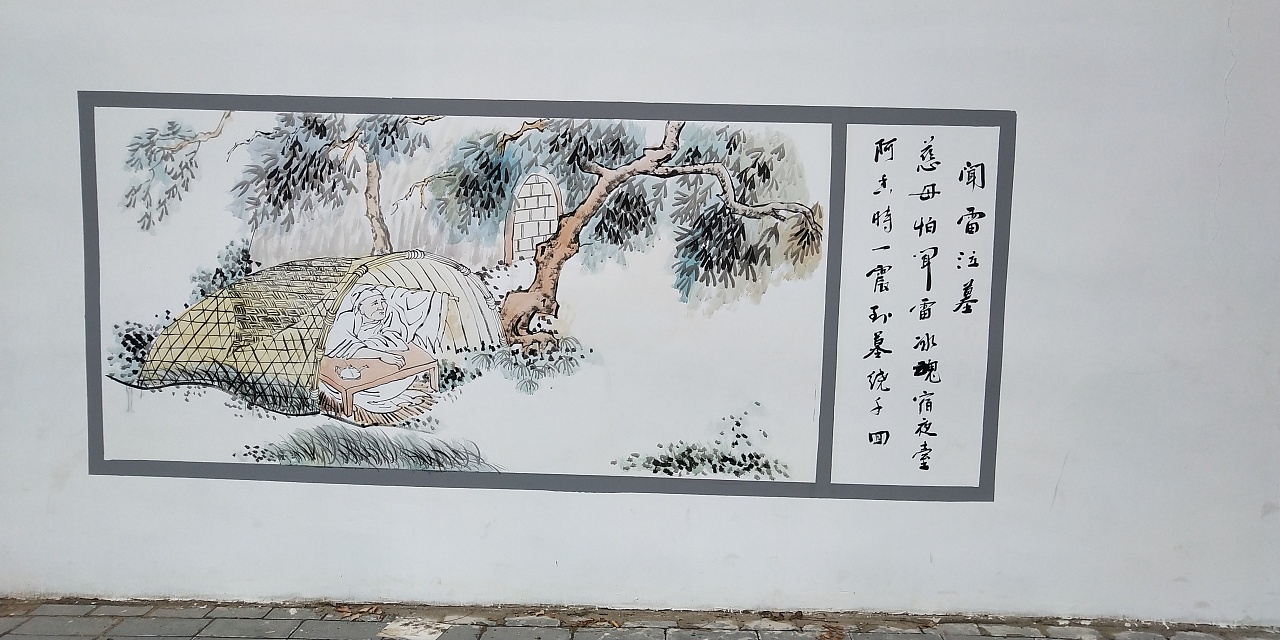 闻雷泣墓
慈母怕闻雷冰魂宿夜台
阿香时一震到墓绕千回